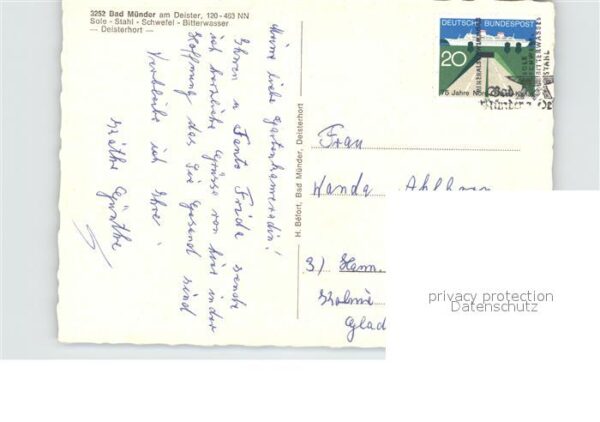 3252 Bad Münder am Deister, 120-463 NN
Sole - Stahl - Schwefel - Bitterwasser
— Deisterhort —
Meine liebe Gartenkameradin!
Ihnen u. Tante Frida sende
ich herzliche Grüsse von hier in der
Hoffnung das Sie Gesund sind
Verbleibe ich Ihre
Käthe
H. Béfort, Bad Münder, Deisterhort
DEUTSCHE BUNDESPOST
20
75 Jahre Nord
Bad
Münder
SOLE
SCHWEFEL
BITTERWASSER
STAHL
Frau
Wanda
3) Hann.
Glad
privacy protection
Datenschutz